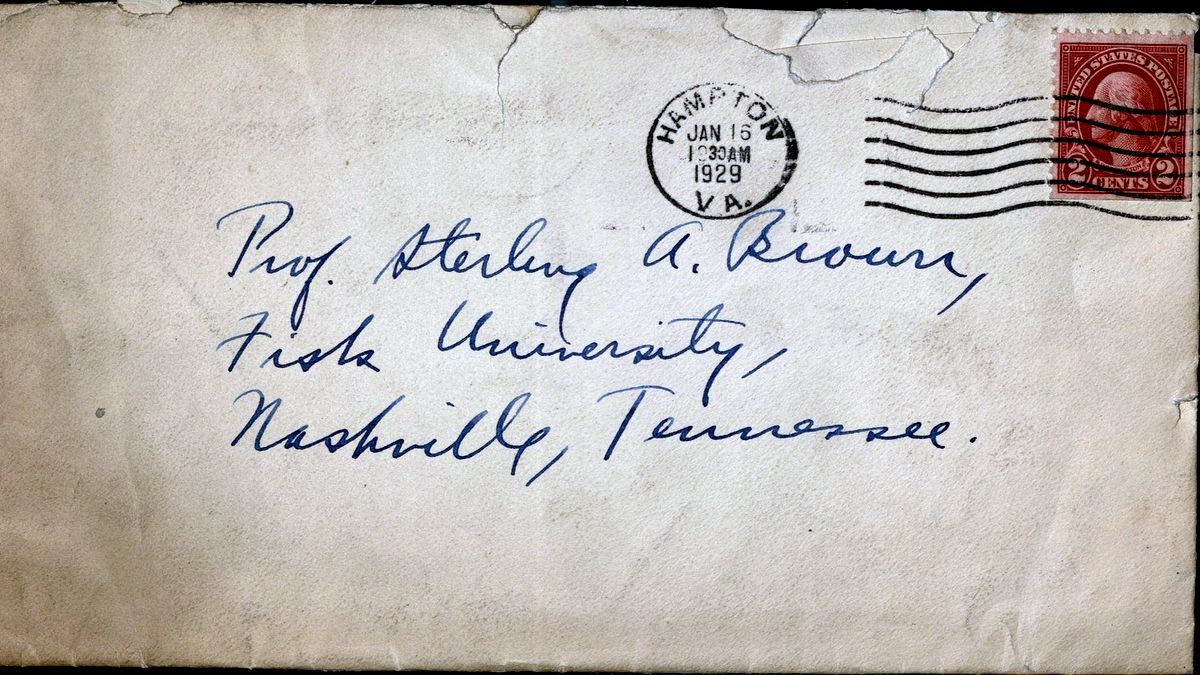 HAMPTON
JAN 16
1929
VA.
UNITED STATES POSTAGE
2 CENTS 2
Prof. Sterling A. Brown,
Fisk University,
Nashville, Tennessee.